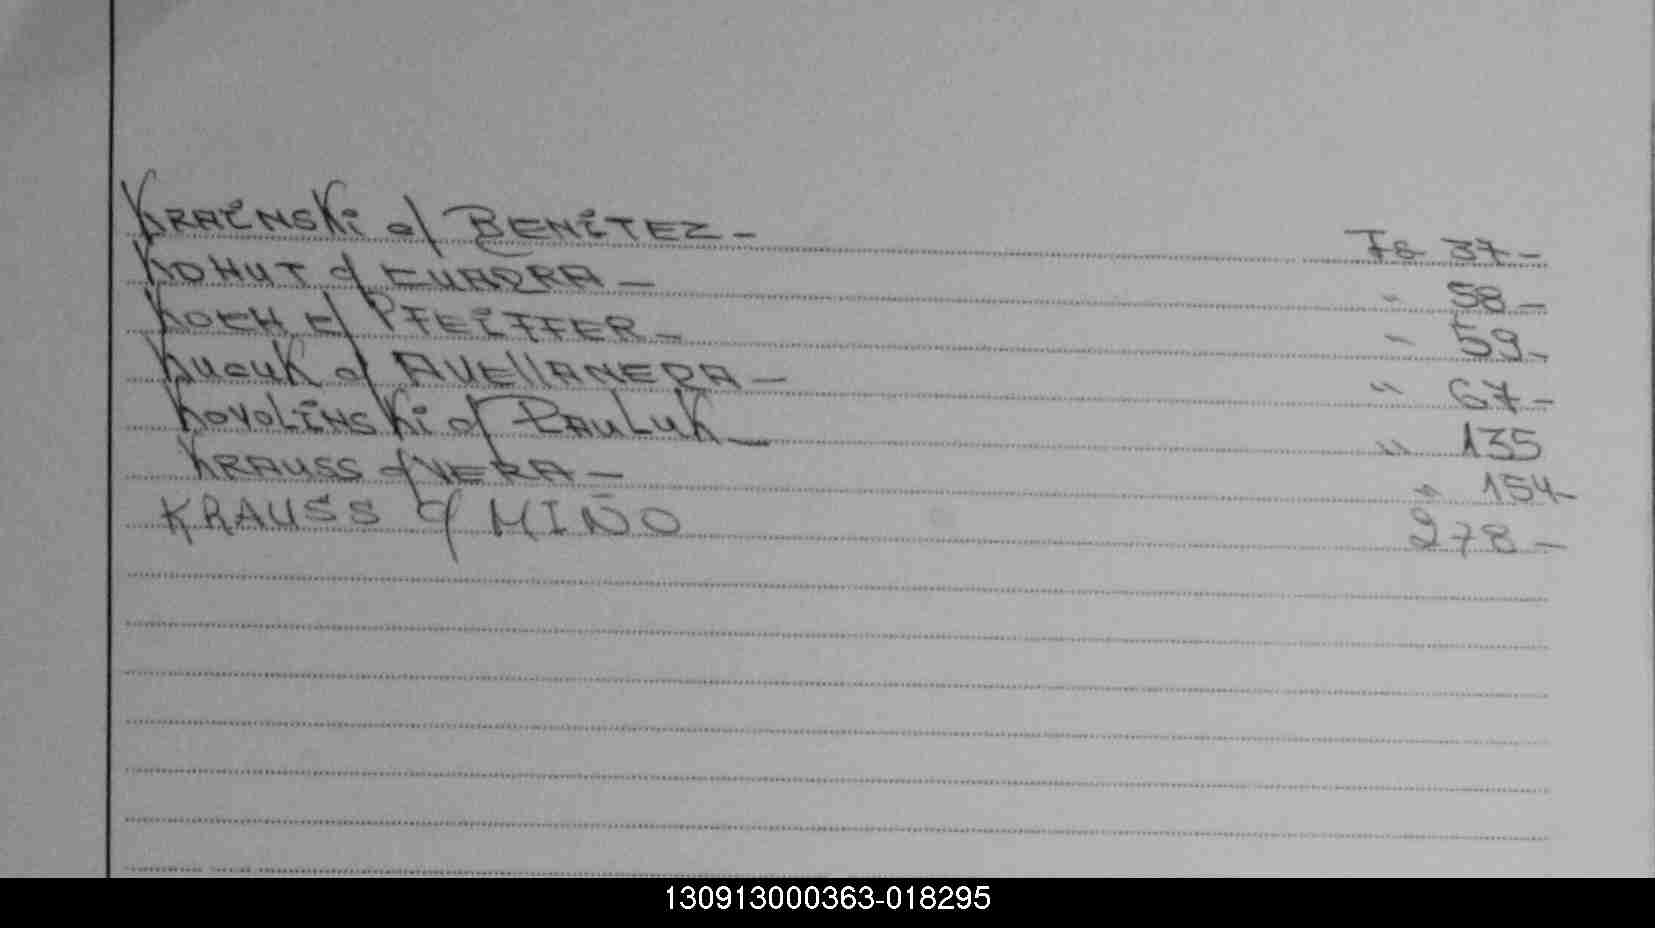 KRAiNSKi c/ BENiTEZ - Fs 37 -
KOHUT c/ CUADRA - " 58 -
KOCH c/ PFEiFFER - " 59 -
KUCUK c/ AVELLANEDA - " 67 -
KOVOLiNSKi c/ PAULUK - " 135
KRAUSS c/ VERA - " 154 -
KRAUSS c/ MIÑO 278 -
130913000363-018295